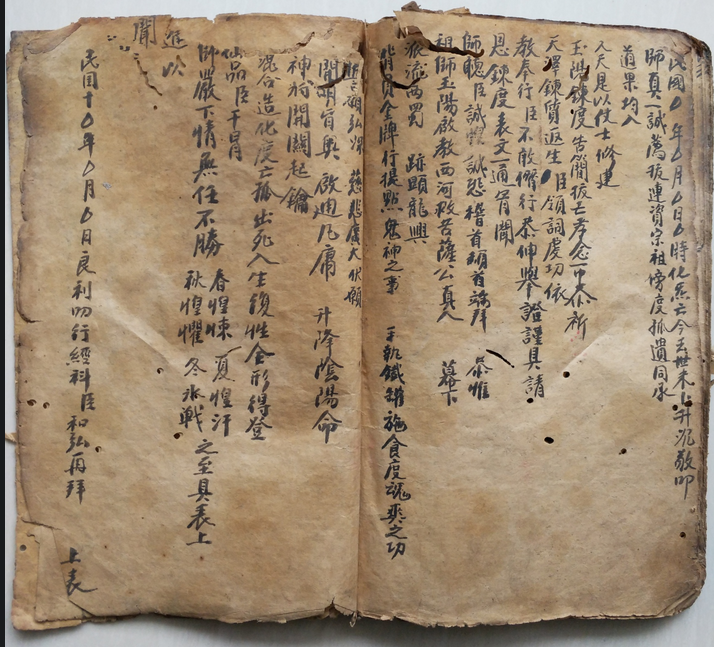 民國〇年〇月〇日〇時化炁亡今去世未卜升沉敬叩
師真一誠薦拔連資宗祖傍度孤遺同承
道果均入
玉陽鍊度告簡拔亡孝念一中 恭祈
天澤鍊質返生 臣領詞虔切依
教奉行臣不敢懈行恭伸舉證謹具請
恩鍊度表文一通 聞
師聰臣誠惶誠恐稽首頓首端拜 恭惟
祖師玉陽啟教西河救苦薩公真人 幕下
派流西蜀 跡顯龍興
背負金牌行提點鬼神之事 手執鐵鑵施食度魂爽之功
弘深 慈悲廣大伏願
闡明旨奧 啟迪凡庸 升降陰陽命
神將開關起鑰
混合造化度亡孤出死入生復性全形得登
仙品臣干冒
師嚴下情無任不勝 春惶悚 夏惶汗 秋惶懼 冬氷戰 之至具表上
進以
聞
民國十〇年〇月〇日良利 行經科臣和弘再拜 上表